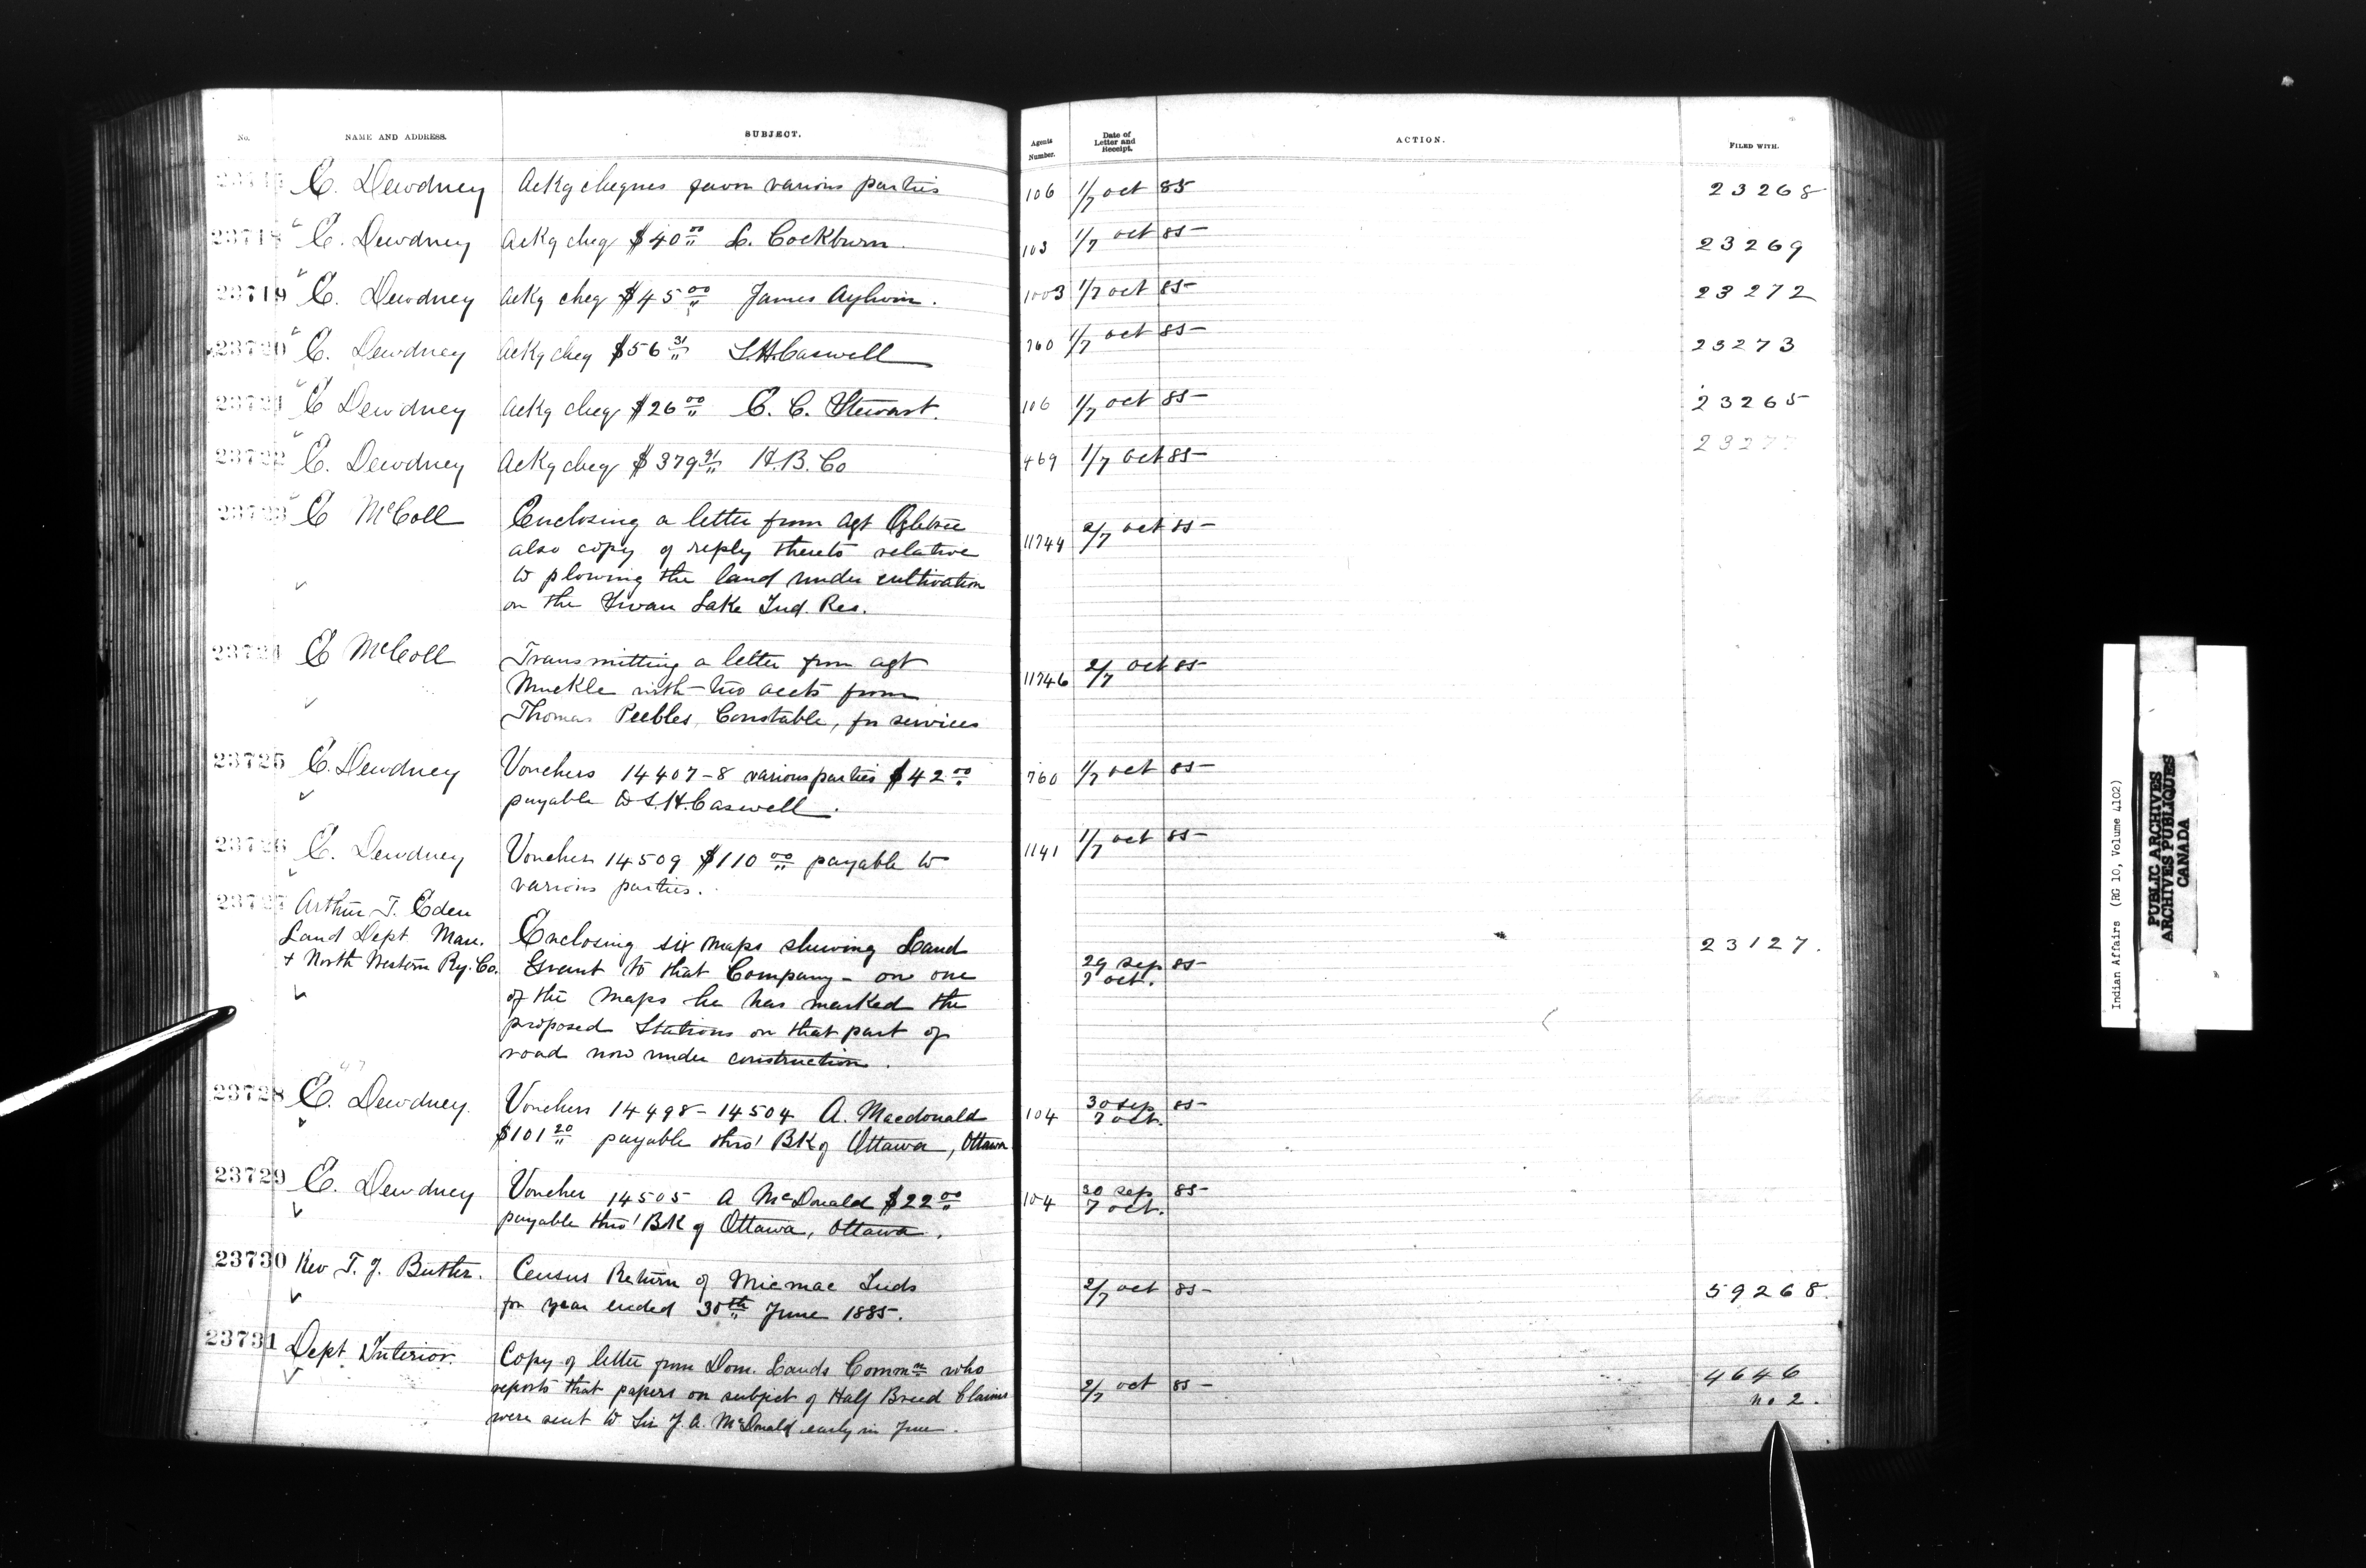 No. NAME AND ADDRESS. SUBJECT. Agents Number. Date of Letter and Receipt. ACTION. FILED WITH.
E. Dewdney Ackg cheques favor various parties 106 1/7 oct 85 23268
23718 E. Dewdney Ackg cheq $40 00 L. Cockburn. 103 1/7 oct 85 23269
23719 E. Dewdney Ackg cheq $45 00 James Aylwin. 1003 1/7 oct 85 23272
23720 E. Dewdney Ackg cheq $56 31 L.H. Caswell 760 1/7 oct 85 23273
23721 E Dewdney Ackg cheq $26 00 E. C. Stewart. 106 1/7 oct 85 23265
23722 E. Dewdney Ackg cheq $379 91 H.B. Co 469 1/7 Oct 85 23277
23723 E McColl Enclosing a letter from Agt Ogletree 11744 2/7 oct 85
also copy of reply thereto relative
to plowing the land under cultivation
on the Swan Lake Ind. Res.
23724 E McColl Transmitting a letter from agt 11746 2/7 oct 85
Muckle with two accts from
Thomas Peebles, Constable, for services
23725 E. Dewdney Vouchers 14407-8 various parties $42 00 760 1/7 oct 85
payable to L.H. Caswell.
23726 E. Dewdney Voucher 14509 $110 00 payable to 1141 1/7 oct 85
various parties.
23727 Arthur T. Eden
Land Dept. Man. Enclosing six maps shewing Land 23127.
+ North Western Ry. Co. Grant to that Company - on one 29 sep 85
of the maps he has marked the 7 oct.
proposed Stations on that part of
road now under construction.
47
23728 E. Dewdney. Vouchers 14498-14504 A. Macdonald 104 30 sep 85
$101 20 payable thro' Bk of Ottawa, Ottawa 7 oct.
23729 E. Dewdney Voucher 14505 A McDonald $22 00 104 30 sep 85
payable thro' Bk of Ottawa, Ottawa. 7 oct.
23730 Rev T. J. Butler. Census Return of Micmac Inds 2/7 oct 85 59268.
for year ended 30th June 1885.
23731 Dept Interior. Copy of letter from Dom. Lands Commn who 4646
reports that papers on subject of Half Breed Claims 2/7 oct 85 no 2.
were sent to Sir J. A. McDonald early in June.
Indian Affairs (RG 10, Volume 4102)
PUBLIC ARCHIVES
ARCHIVES PUBLIQUES
CANADA